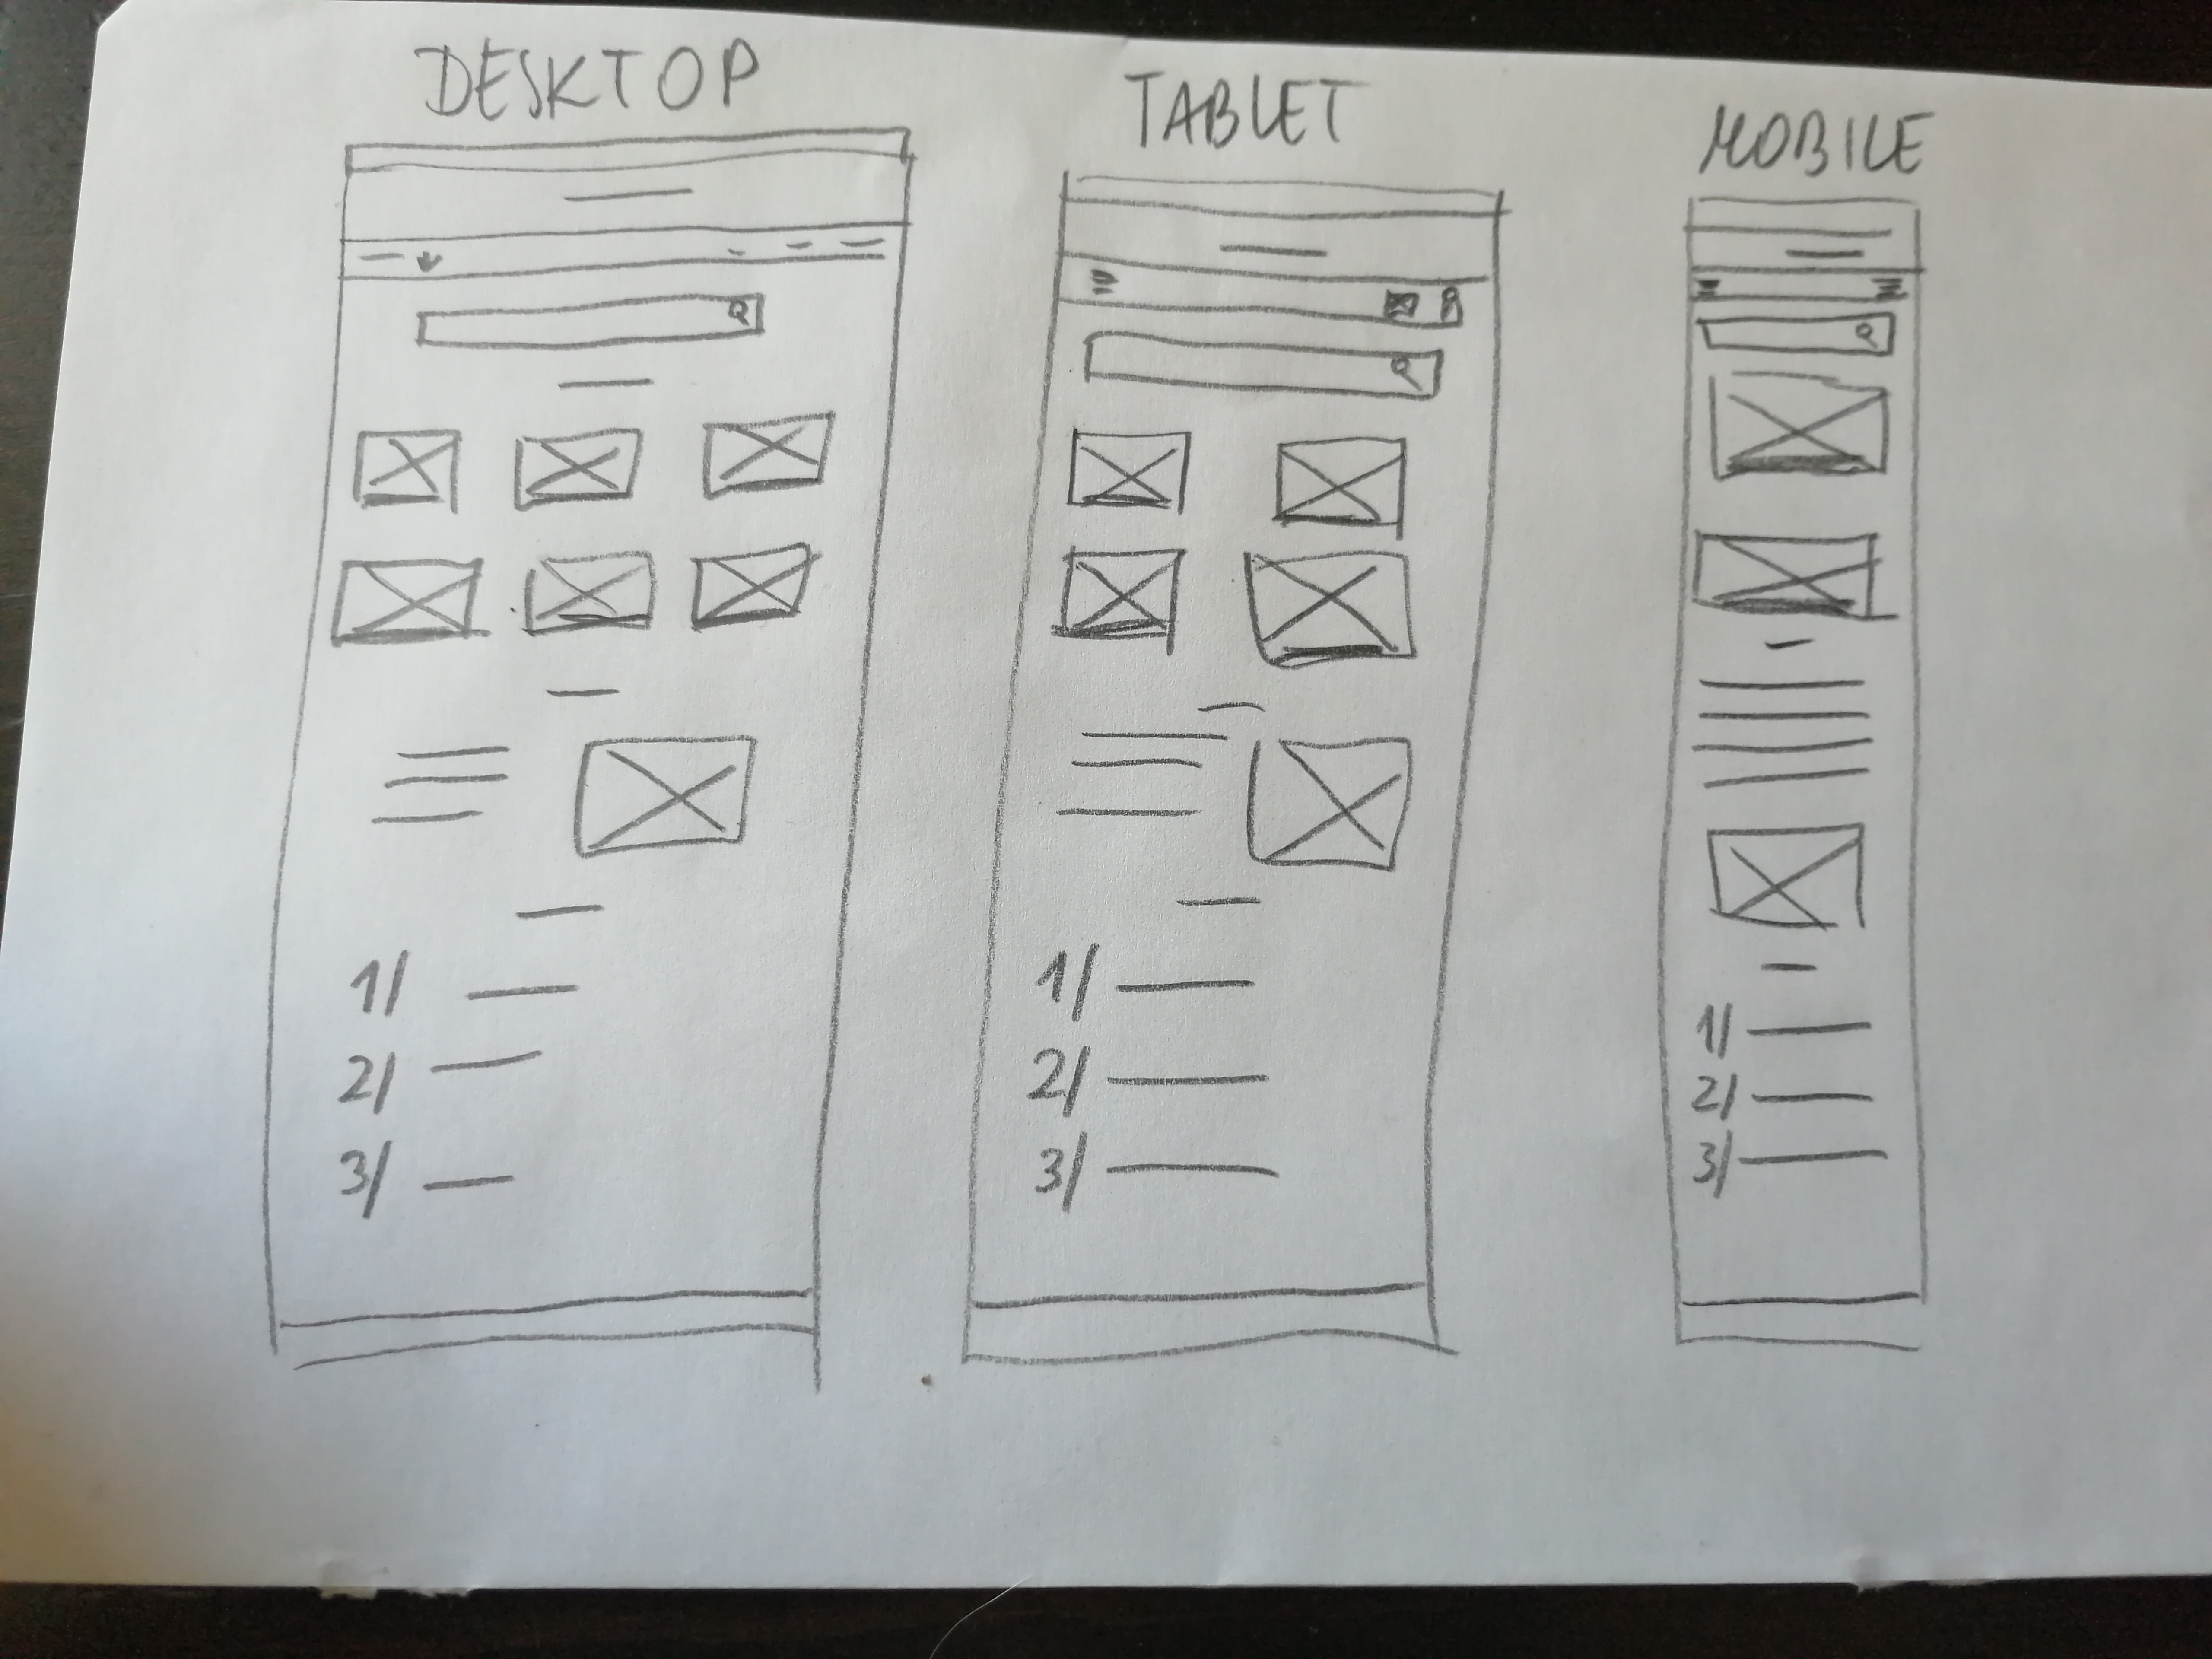 DESKTOP
1/
2/
3/
TABLET
1/
2/
3/
MOBILE
1/
2/
3/